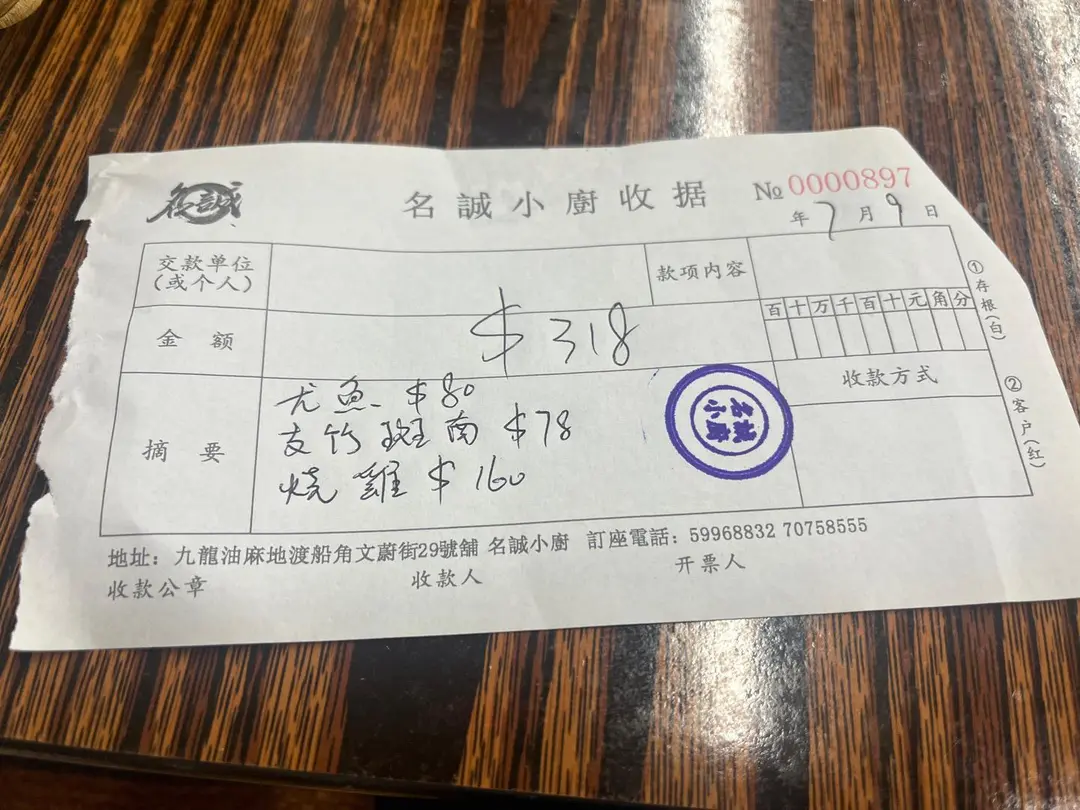 名誠
名誠小廚收据
№ 0000897
年 7 月 9 日
交款单位
(或个人)
款项内容
百十万千百十元角分
金 额
$ 318
收款方式
摘 要
尤魚 $80
支竹斑南 $78
烧雞 $160
名誠
小廚
①存根(白)
②客户(红)
地址：九龍油麻地渡船角文蔚街29號舖 名誠小廚 訂座電話：59968832 70758555
收款公章
收款人
开票人